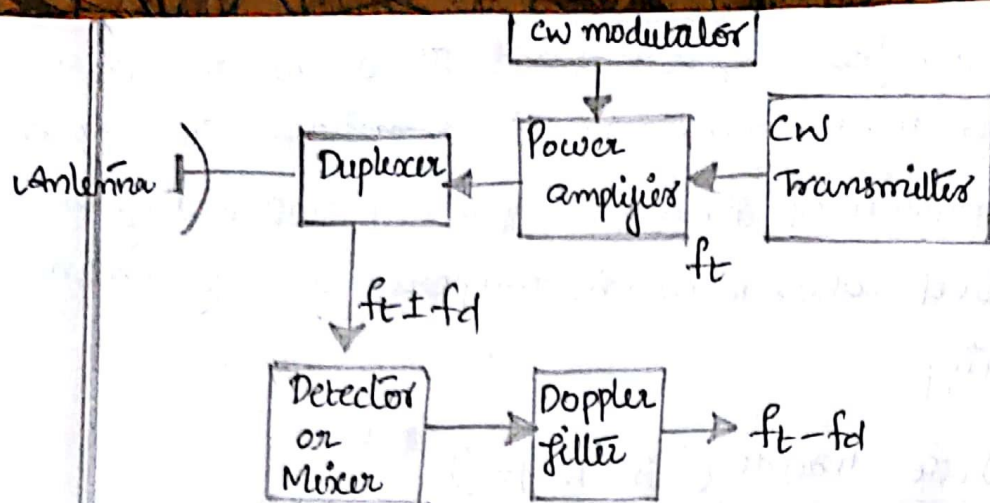 CW modutalor
Antenna
Duplexer
Power
amplifier
CW
Transmitter
ft
ft ± fd
Detector
or
Mixer
Doppler
filter
ft - fd